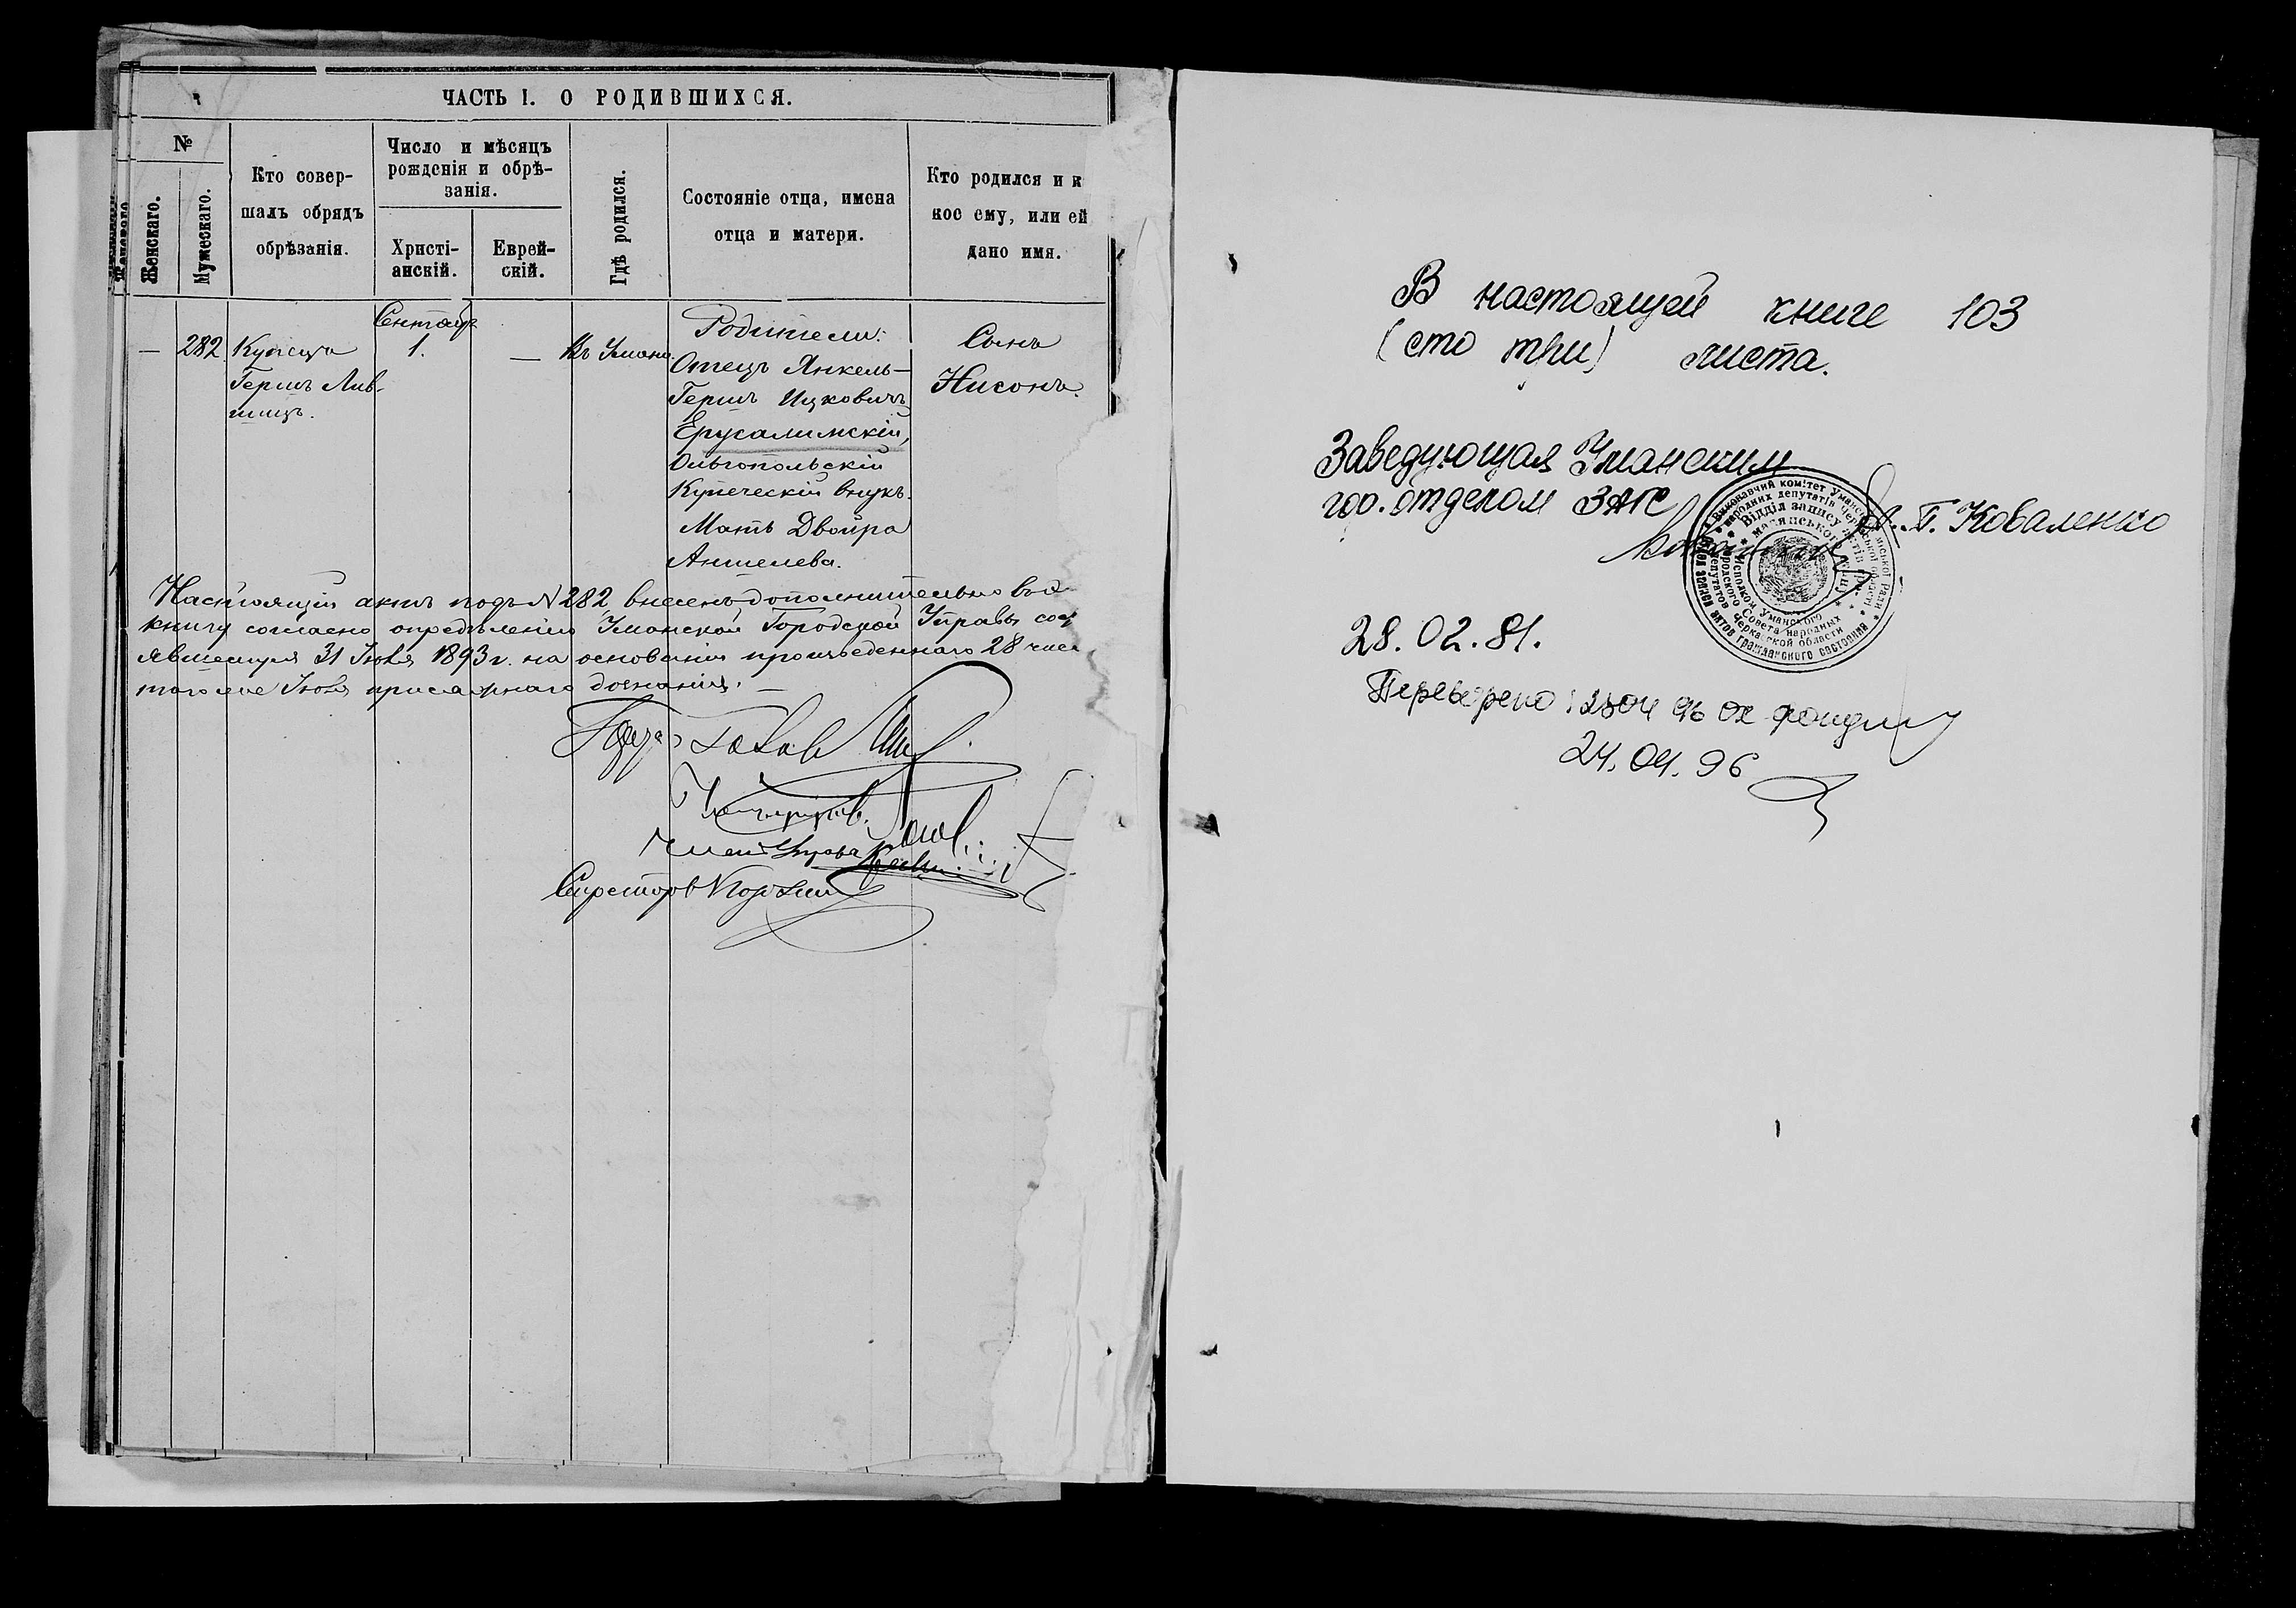 ЧАСТЬ I. О РОДИВШИХСЯ.
№
Женскаго.
Мужескаго.
Кто совер-
шалъ обрядъ
обрѣзанія.
Число и мѣсяцъ
рожденія и обрѣ-
занія.
Христі-
анскій.
Еврей-
скій.
Гдѣ родился.
Состояніе отца, имена
отца и матери.
Кто родился и к
кое ему, или ей
дано имя.
— 282.
Купецъ
Гершъ Лив-
шицъ.
Сентябр
1.
—
Въ Умани
Родители:
Отецъ Янкель-
Гершъ Ицковичъ
Ерусалимскій,
Ольгопольскій
Купеческій внукъ.
Мать Двойра
Аншелева.
Сынъ
Нисонъ.
Настоящій актъ подъ N 282 внесенъ дополнительно въ
книгу согласно опредѣленію Уманской Городской Управы сос
явшемуся 31 Іюля 1893 г. на основаніи произведеннаго 28 чис
того же Іюля присяжнаго дознанія. —
В настоящей книге 103
(сто три) листа.
Заведующая Уманским
гор. отделом ЗАГС
П. Коваленко
28.02.81.
Виконавчий комітет Уманської міської Ради
народних депутатів Черкаської області
Відділ запису актів громадянського стану
Исполком Уманского городского Совета народных депутатов Черкасской области
Отдел записи актов гражданского состояния
фонду
24.04.96